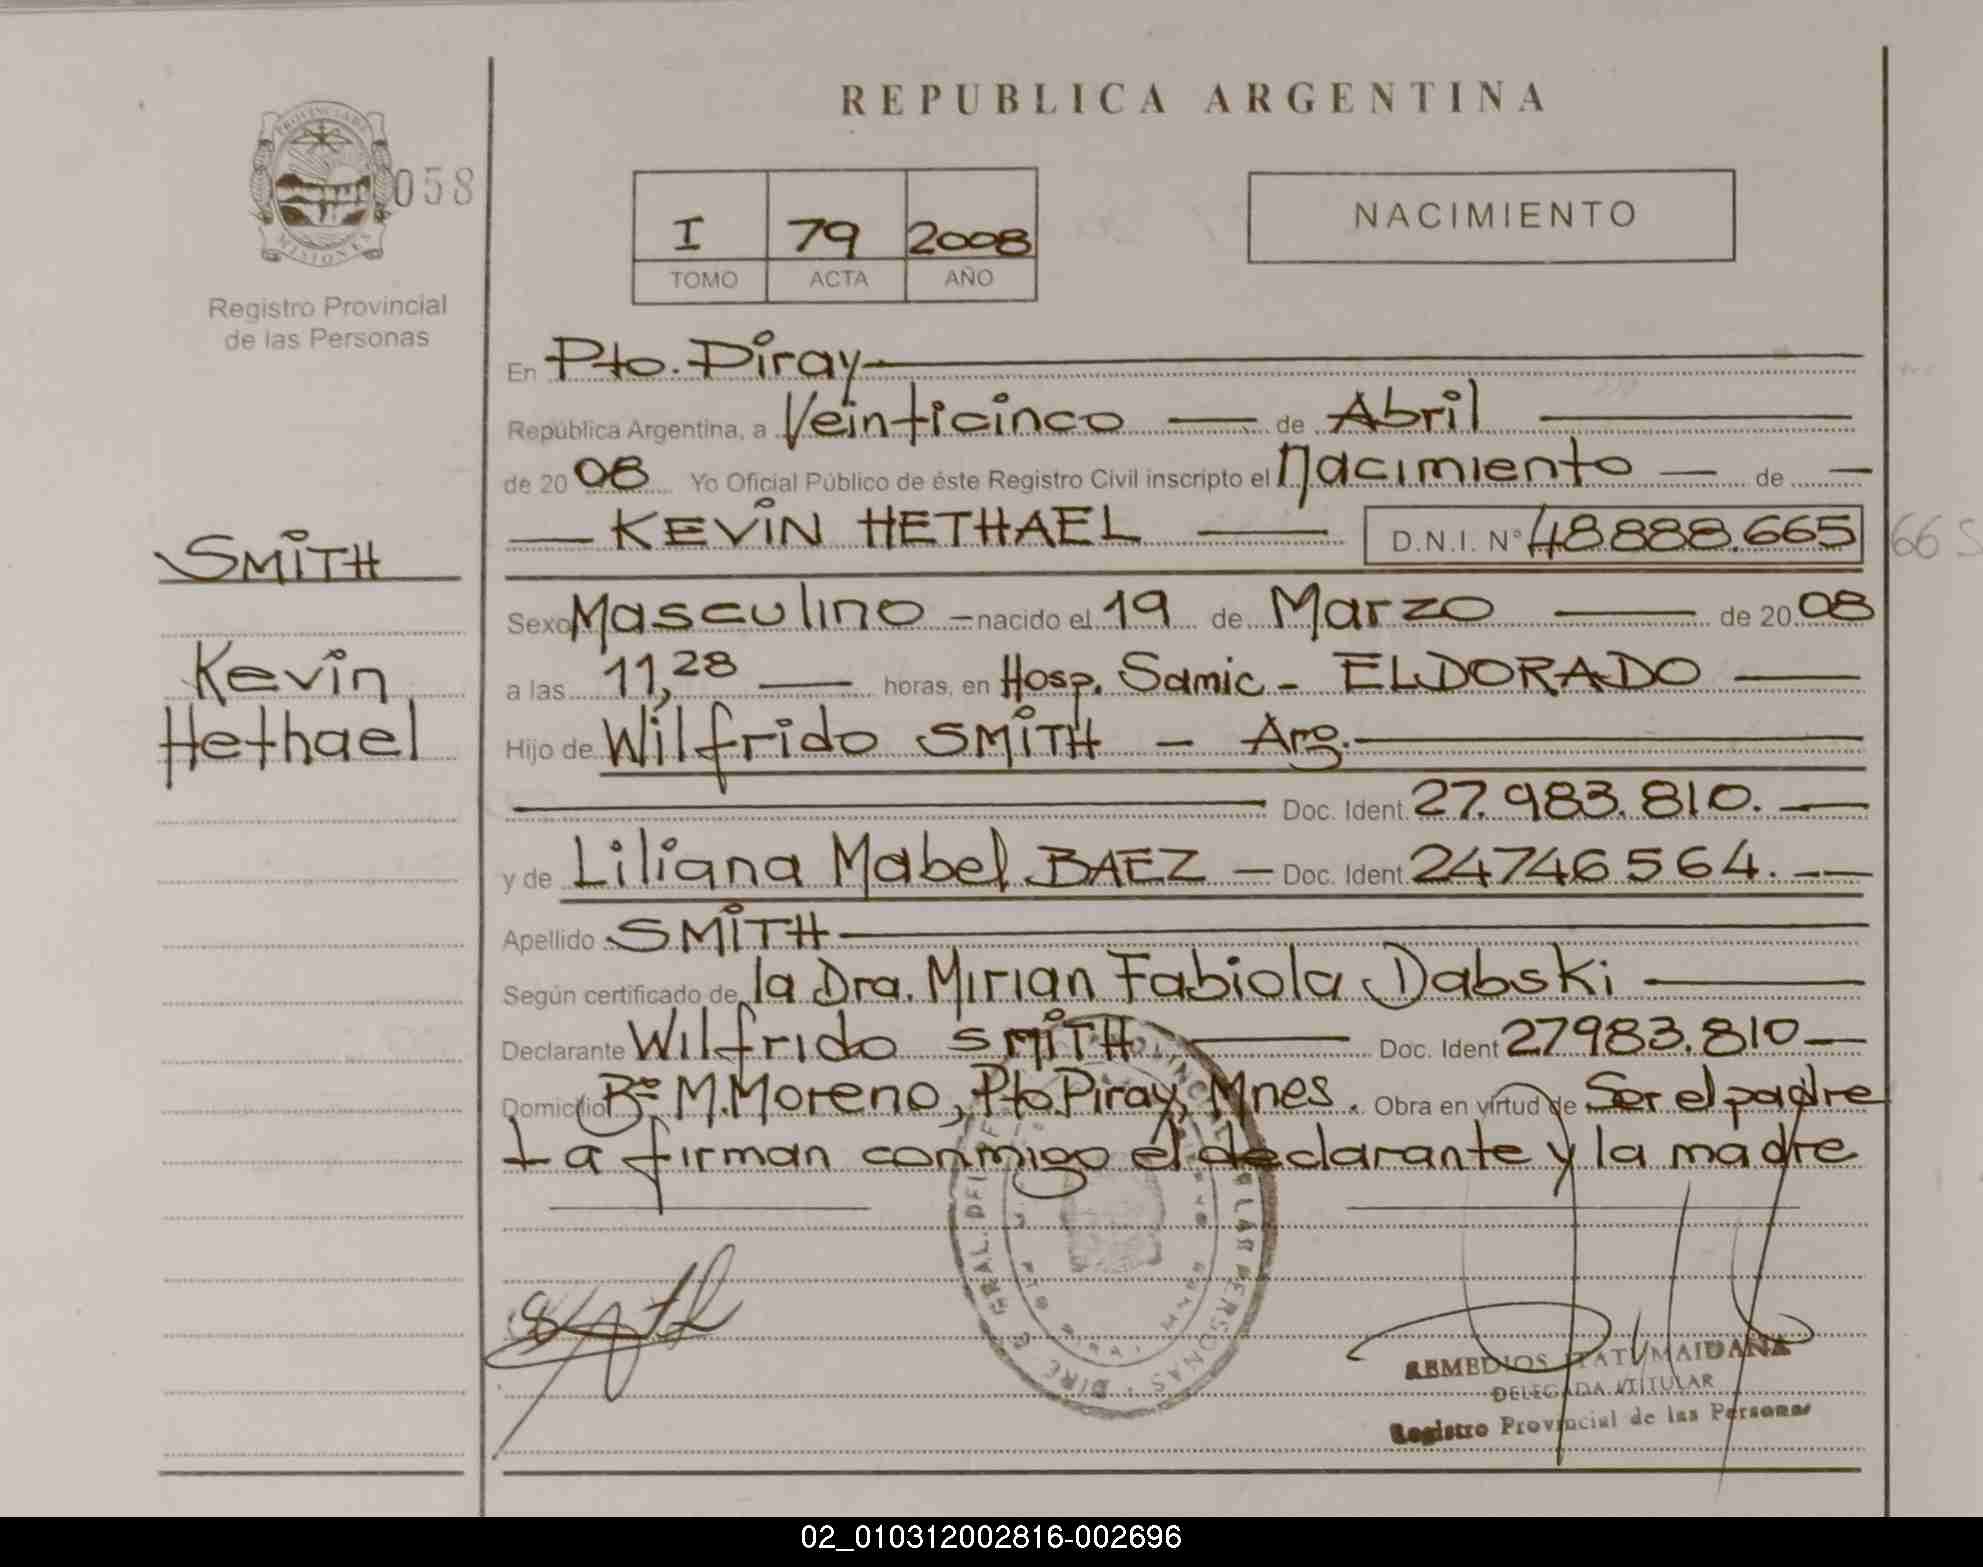 REPUBLICA ARGENTINA
PROVINCIA DE
MISIONES
058
Registro Provincial
de las Personas
I 79 2008
TOMO ACTA AÑO
NACIMIENTO
SMITH
Kevin
Hethael
En Pto. Piray
República Argentina, a Veinticinco — de Abril
de 20 08 Yo Oficial Público de éste Registro Civil inscripto el Nacimiento — de —
— KEVIN HETHAEL — D.N.I. N° 48.888.665
66 5
Sexo Masculino – nacido el 19 de Marzo — de 20 08
a las 11,28 — horas, en Hosp. Samic - ELDORADO —
Hijo de Wilfrido SMITH – Arg. —
— Doc. Ident. 27.983.810. —
y de Liliana Mabel BAEZ – Doc. Ident. 24746564. —
Apellido SMITH —
Según certificado de la Dra. Mirian Fabiola Dabski —
Declarante Wilfrido SMITH — Doc. Ident 27983.810 —
Domicilio Bº M. Moreno, Pto Piray, Mnes. Obra en virtud de Ser el padre
La firman conmigo el declarante y la madre
REMEDIOS ITATI MAIDANA
DELEGADA TITULAR
Registro Provincial de las Personas
02_010312002816-002696